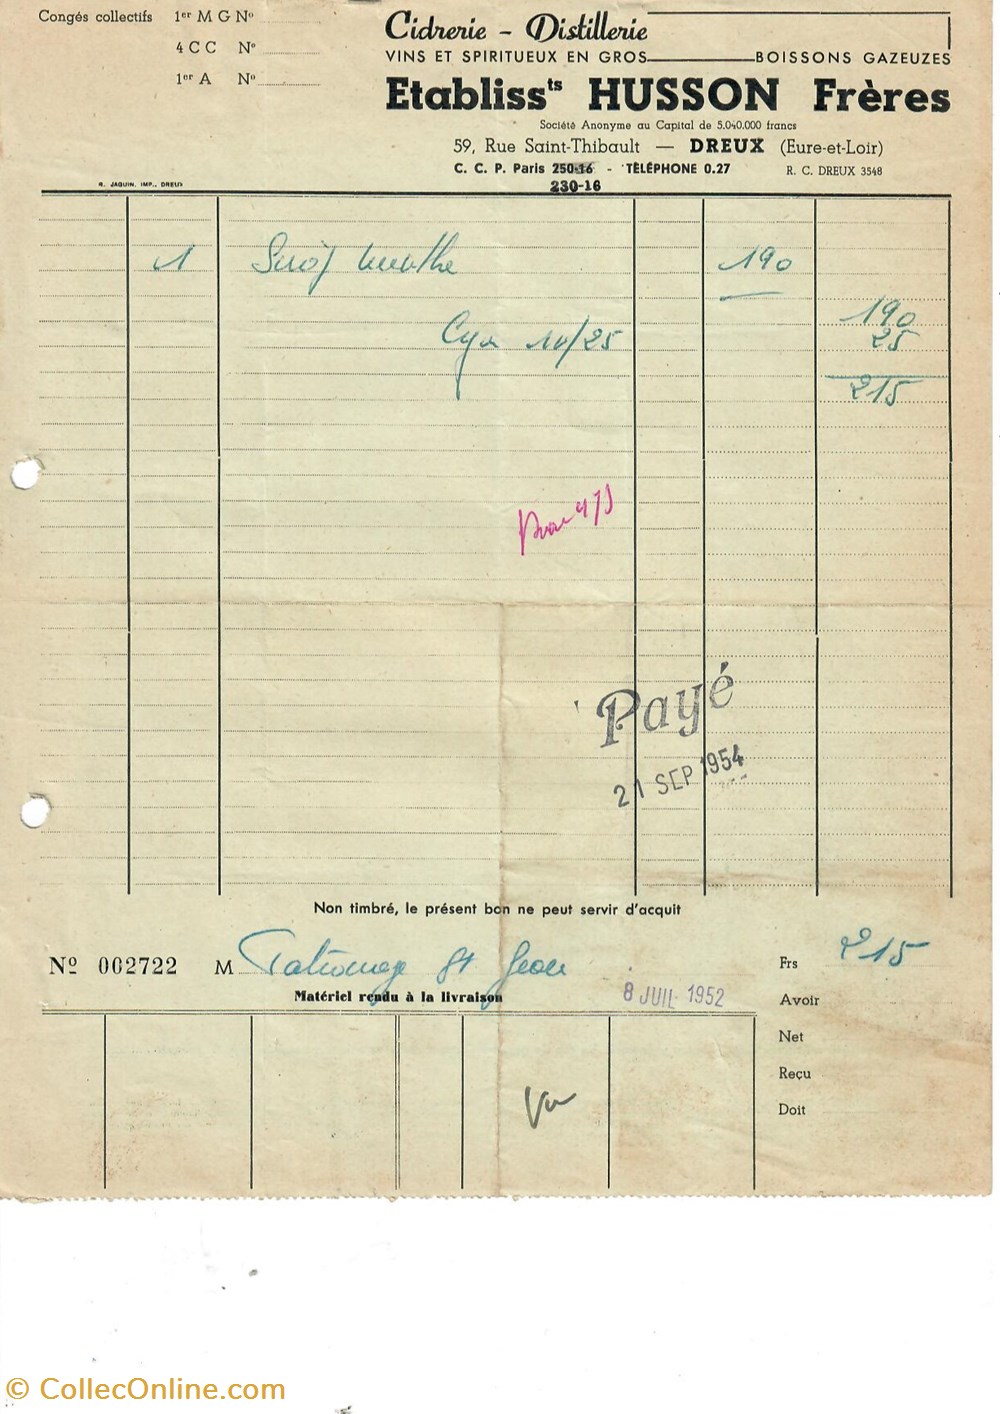 Congés collectifs 1er M G No
4 C C No
1er A No
Cidrerie - Distillerie
VINS ET SPIRITUEUX EN GROS BOISSONS GAZEUZES
Etablissts HUSSON Frères
Société Anonyme au Capital de 5.040.000 francs
59, Rue Saint-Thibault — DREUX (Eure-et-Loir)
C. C. P. Paris 250-16 - TÉLÉPHONE 0.27 R. C. DREUX 3548
230-16
R. JAQUIN, IMP., DREUX
1 Sirop menthe 190
190
10/25 25
215
Payé
21 SEP 1954
Non timbré, le présent bon ne peut servir d'acquit
No 002722 M Patronage St Jean Frs 215
Matériel rendu à la livraison 8 JUIL 1952
Avoir
Net
Reçu
Doit
Vu
© CollecOnline.com